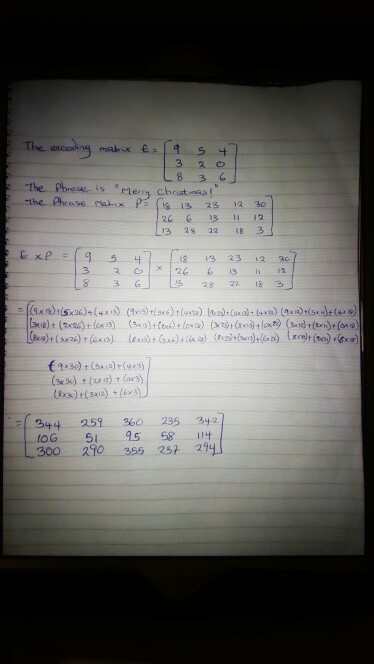 The encoding matrix E = [ 9 5 4
3 2 0
8 3 6 ]
The Phrase is "Merry Christmas!"
The Phrase Matrix P = [ 18 13 23 12 30
26 6 13 11 12
13 28 22 18 3 ]
E x P = [ 9 5 4 x [ 18 13 23 12 30
3 2 0 26 6 13 11 12
8 3 6 ] 13 28 22 18 3 ]
= [ (9x18)+(5x26)+(4x13) (9x13)+(5x6)+(4x28) (9x23)+(5x13)+(4x22) (9x12)+(5x11)+(4x18)
(3x18)+(2x26)+(0x13) (3x13)+(2x6)+(0x28) (3x23)+(2x13)+(0x22) (3x12)+(2x11)+(0x18)
(8x18)+(3x26)+(6x13) (8x13)+(3x6)+(6x28) (8x23)+(3x13)+(6x22) (8x12)+(3x11)+(6x18)
(9x30)+(5x12)+(4x3)
(3x30)+(2x12)+(0x3)
(8x30)+(3x12)+(6x3) ]
= [ 344 259 360 235 342
106 51 95 58 114
300 290 355 237 294 ]